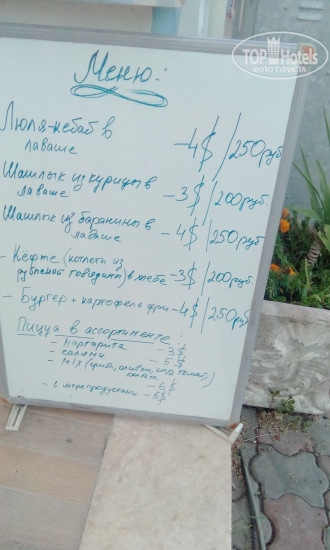 TOP Hotels
ФОТО ТУРИСТА
Меню:
Люля-кебаб в
лаваше -4$/250руб
Шашлык из курицы в
лаваше -3$/200руб
Шашлык из баранины в
лаваше -4$/250руб
- Кефте (котлеты из
рубленой говядины) в хлебе -3$/200руб
- Бургер + картофель фри -4$/250руб
Пицца в ассортименте:
- маргарита 3$
- салями - 5$
- MIX (
- с морепродуктами - 6$